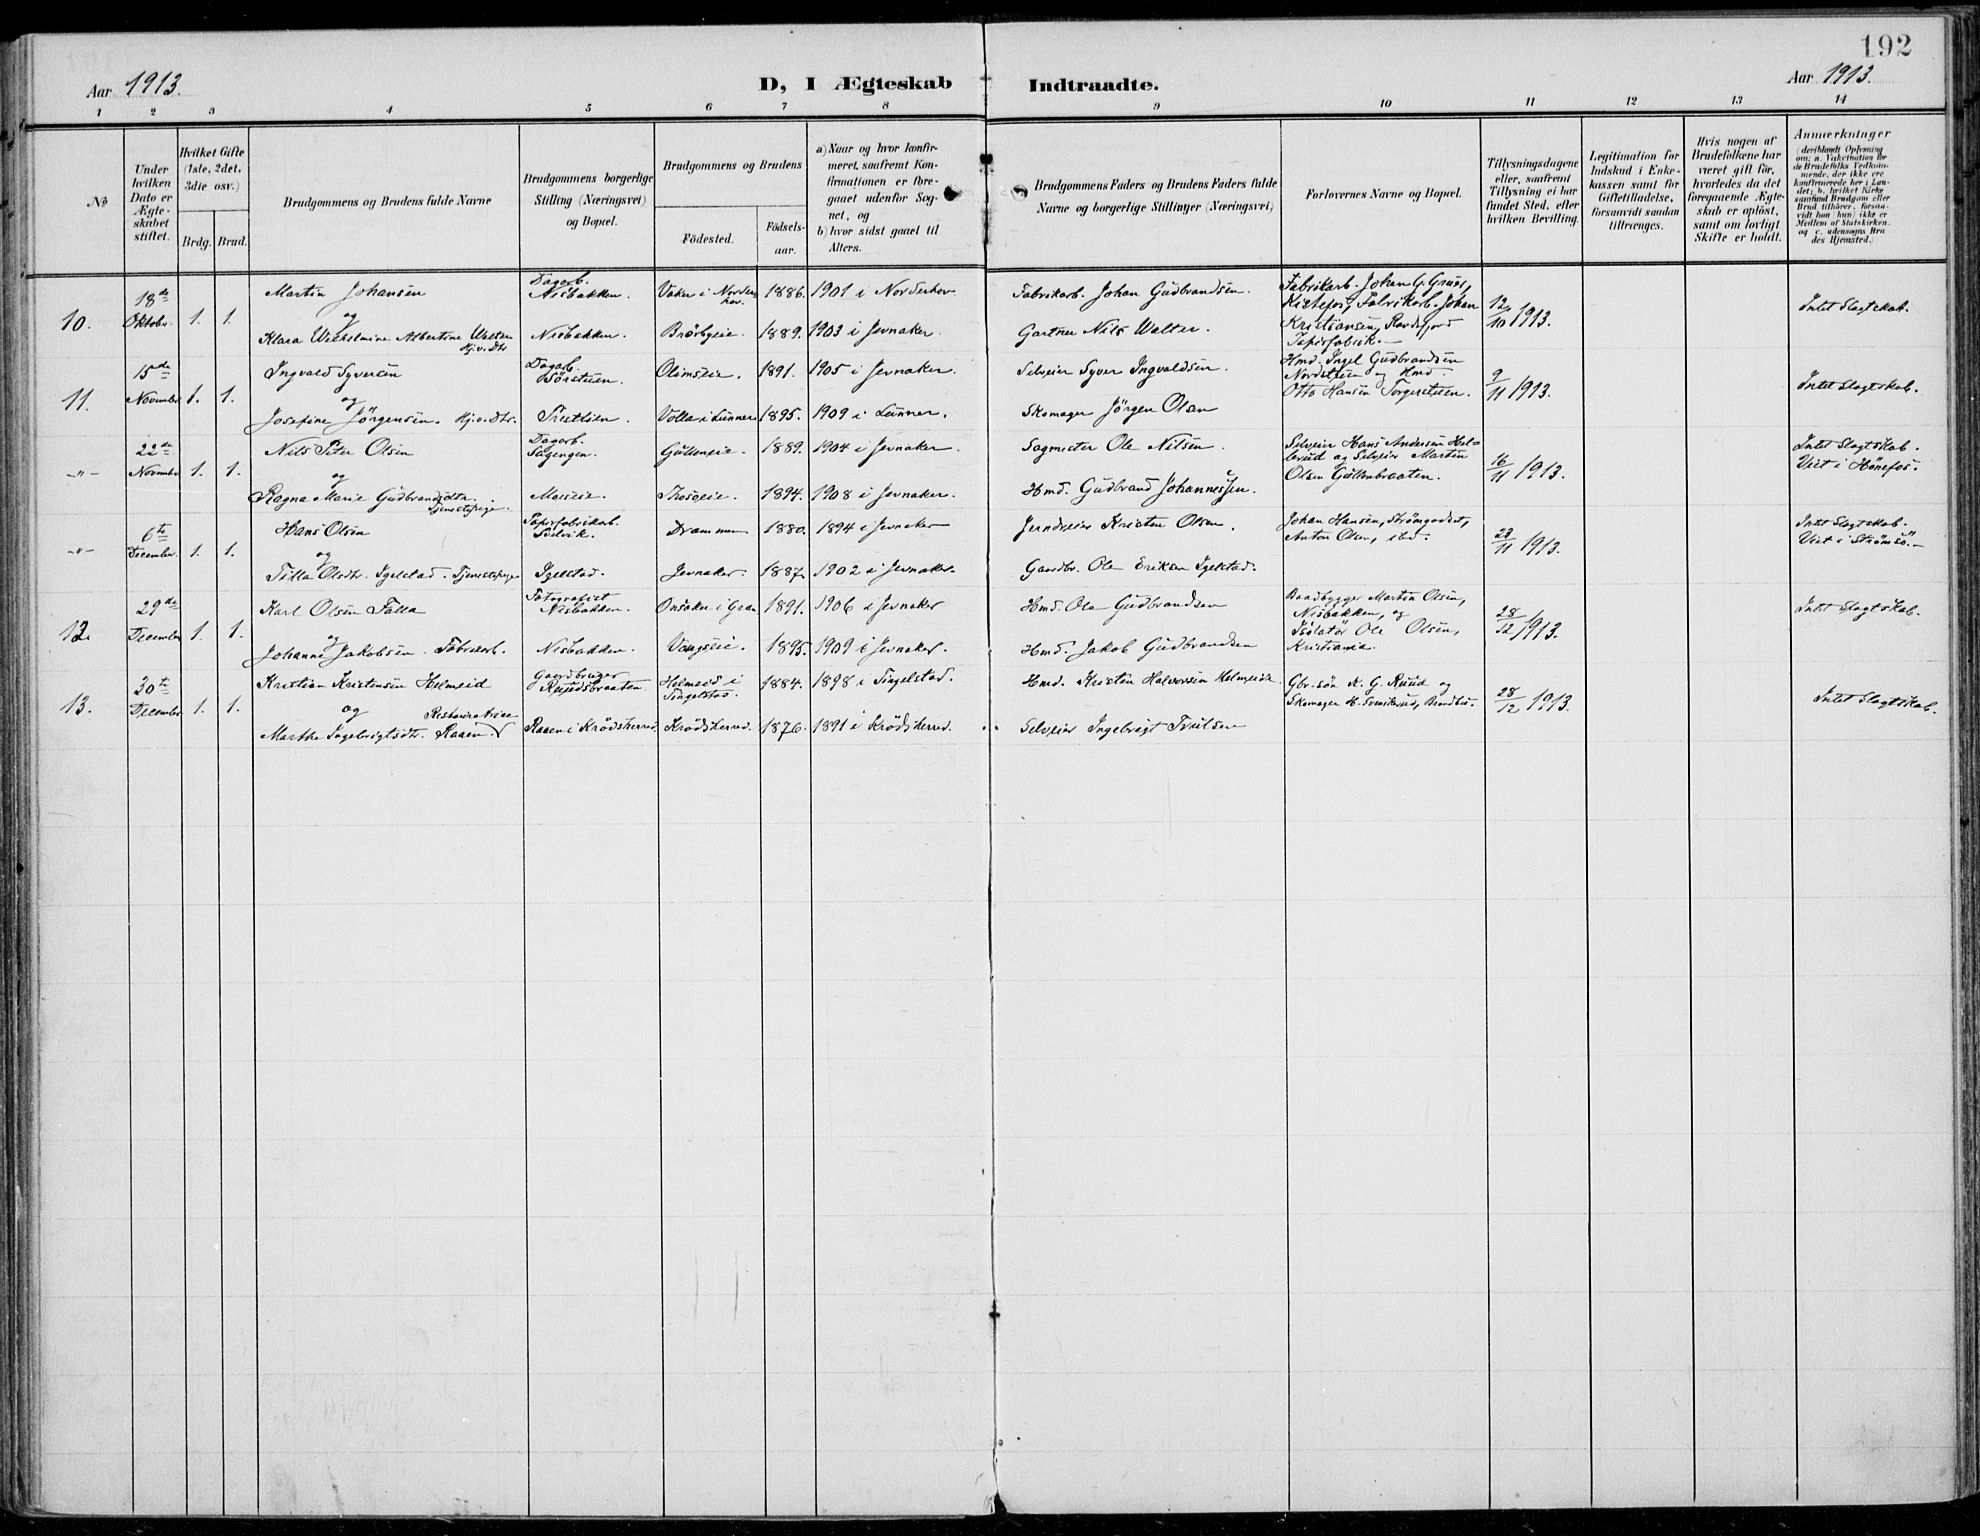 192
Aar 1913.
D, I Ægteskab Indtraadte.
Aar 1913.
1 2 3 4 5 6 7 8 9 10 11 12 13 14
№
Under
hvilken
Dato er
Ægte-
skabet
stiftet.
Hvilket Gifte
(1ste, 2det,
3die osv.)
Brdg. Brud.
Brudgommens og Brudens fulde Navne
Brudgommens borgerlige
Stilling (Næringsvei)
og Bopæl.
Brudgommens og Brudens
Födested.
Födsels-
aar.
a) Naar og hvor konfir-
meret, saafremt Kon-
firmationen er fore-
gaaet udenfor Sog-
net, og
b) hvor sidst gaaet til
Alters.
Brudgommens Faders og Brudens Faders fulde
Navne og borgerlige Stillinger (Næringsvei)
Forlovernes Navne og Bopæl.
Tillysningsdagene
eller, saafremt
Tillysning ei har
fundet Sted, efter
hvilken Bevilling.
Legitimation for
Indskud i Enke-
kassen samt for
Giftetilladelse,
forsaavidt saadan
tiltrænges.
Hvis nogen af
Brudefolkene har
været gift för,
hvorledes da det
foregaaende Ægte-
skab er oplöst,
samt om lovligt
Skifte er holdt.
Anmærkninger
(deriblandt Oplysning
om: a. Vakcination for
de Brudefolks Vedkom-
mende, der ikke ere
konfirmerede her i Lan-
det; b. hvilket Kirke
samfund Brudgom eller
Brud tilhörer, forsaa-
vidt han (hun) ikke er
Medlem af Statskirken,
og c. udensogns Bru
des Hjemsted.
10. 18de Oktobr. 1. 1.
Martin Johansen
og
Klara Wilhelmine Albertine Walter
Hj.v. Dtr.
Dagarb.
Nisbakken.
Nisbakken.
Vaker i Norder
hov.
1886. 1901 i Norderhov
1889. 1903 i Jevnaker.
Fabrikarb. Johan Gudbrandsen.
Gartner Nils Walter.
Fabrikarb. Johan G.
Kistefos, Fabrikarb. Johan
Kristiansen, Randsfjord
Papirfabrik.
12/10 1913.
Intet Slegtskab.
11. 15de November 1. 1.
Ingvald Syversen
og
Josefine Jörgensen. Hj.v. Dtr.
Dagarb.
Börsteien.
Prestlien.
Olimseie. 1891. 1905 i Jevnaker.
Volla i Lunner 1895. 1909 i Lunner.
Selveier Syver Ingvaldsen.
Skomager Jörgen Olsen
Hmd. Ingel Gudbrandsen
og Hmd.
Otto Hansen Torgersteien.
9/11 1913.
Intet Slegtskab.
-"- 22de November 1. 1.
Nils Peter Olsen
og
Ragna Marie Gudbrandsdtr.
Tjenestepige.
Dagarb.
Sagengen.
Moeseie.
Gulleneie. 1889. 1904 i Jevnaker.
1894. 1908 i Jevnaker.
Sagmester Ole Nilsen
Hmd. Gudbrand Johannessen.
Selveier Hans Andersen Hel-
lerud og Selveier Martin
Olsen Gullenbraaten.
16/11 1913.
Intet Slegtskab.
Viet i Hönefos.
-"- 6te December. 1. 1.
Hans Olsen
og
Tilla Olsdtr. Igelstad. Tjenestepige
Papirfabrikarb.
Igelstad.
Drammen 1880. 1894 i Jevnaker
Jevnaker. 1887. 1902 i Jevnaker.
Jernbeier Kristen Olsen.
Gaardbr. Ole Eriksen Igelstad.
Johan Hansen, Strömgodset,
Anton Olsen, ibd.
23/11 1913.
Intet Slegtskab.
Viet i Strömsö.
12. 29de December 1. 1.
Karl Olsen Falla
og
Johanne Jakobsen. Fabrikarb.
Fotografist
Nisbakken.
Nisbakken.
Onsaker i Gran 1891. 1906 i Jevnaker
Vangseie. 1895. 1909 i Jevnaker.
Hmd. Ole Gudbrandsen
Hmd. Jakob Gudbrandsen
Baadbygger Martin Olsen,
Nisbakken, og
Isolatör Ole Olsen,
Kristiania.
28/12 1913.
Intet Slegtskab.
13. 30te December 1. 1.
Kristian Kristensen Helmeid
og
Marthe Ingebrigtsdtr. Raaen.
Gaardbruger
Ruudsbraaten
Raaen i Krödsherred.
Helmeid i
Tingelstad.
Krödsherred.
1884. 1898 i Tingelstad.
1876. 1891 i Krödsherred.
Hmd. Kristen Halvorsen Helmeid.
Selveier Ingebrigt Truls en
Gbr.sön K. G. Ruud og
Skomager H. Svenskerud, Brandbu.
28/12 1913.
Intet Slegtskab.